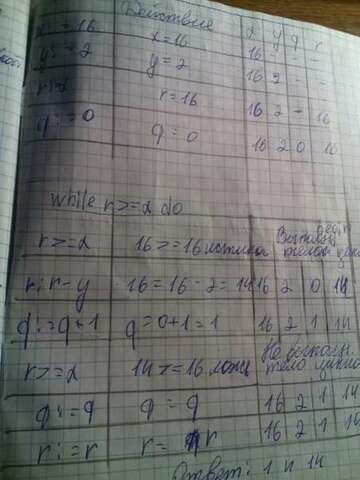 Действие x y q r
x := 16 x = 16 16 - - -
y := 2 y = 2 16 2 - -
r := x r = 16 16 2 - 16
q := 0 q = 0 16 2 0 16
while r >= x do
r >= x 16 >= 16 истина
r: r - y 16 = 16 - 2 = 14 16 2 0 14
q := q + 1 q = 0 + 1 = 1 16 2 1 14
r >= x 14 >= 16 ложь Не
q := q q = q 16 2 1 14
r := r r = r 16 2 1 14
Ответ: 1 и 14